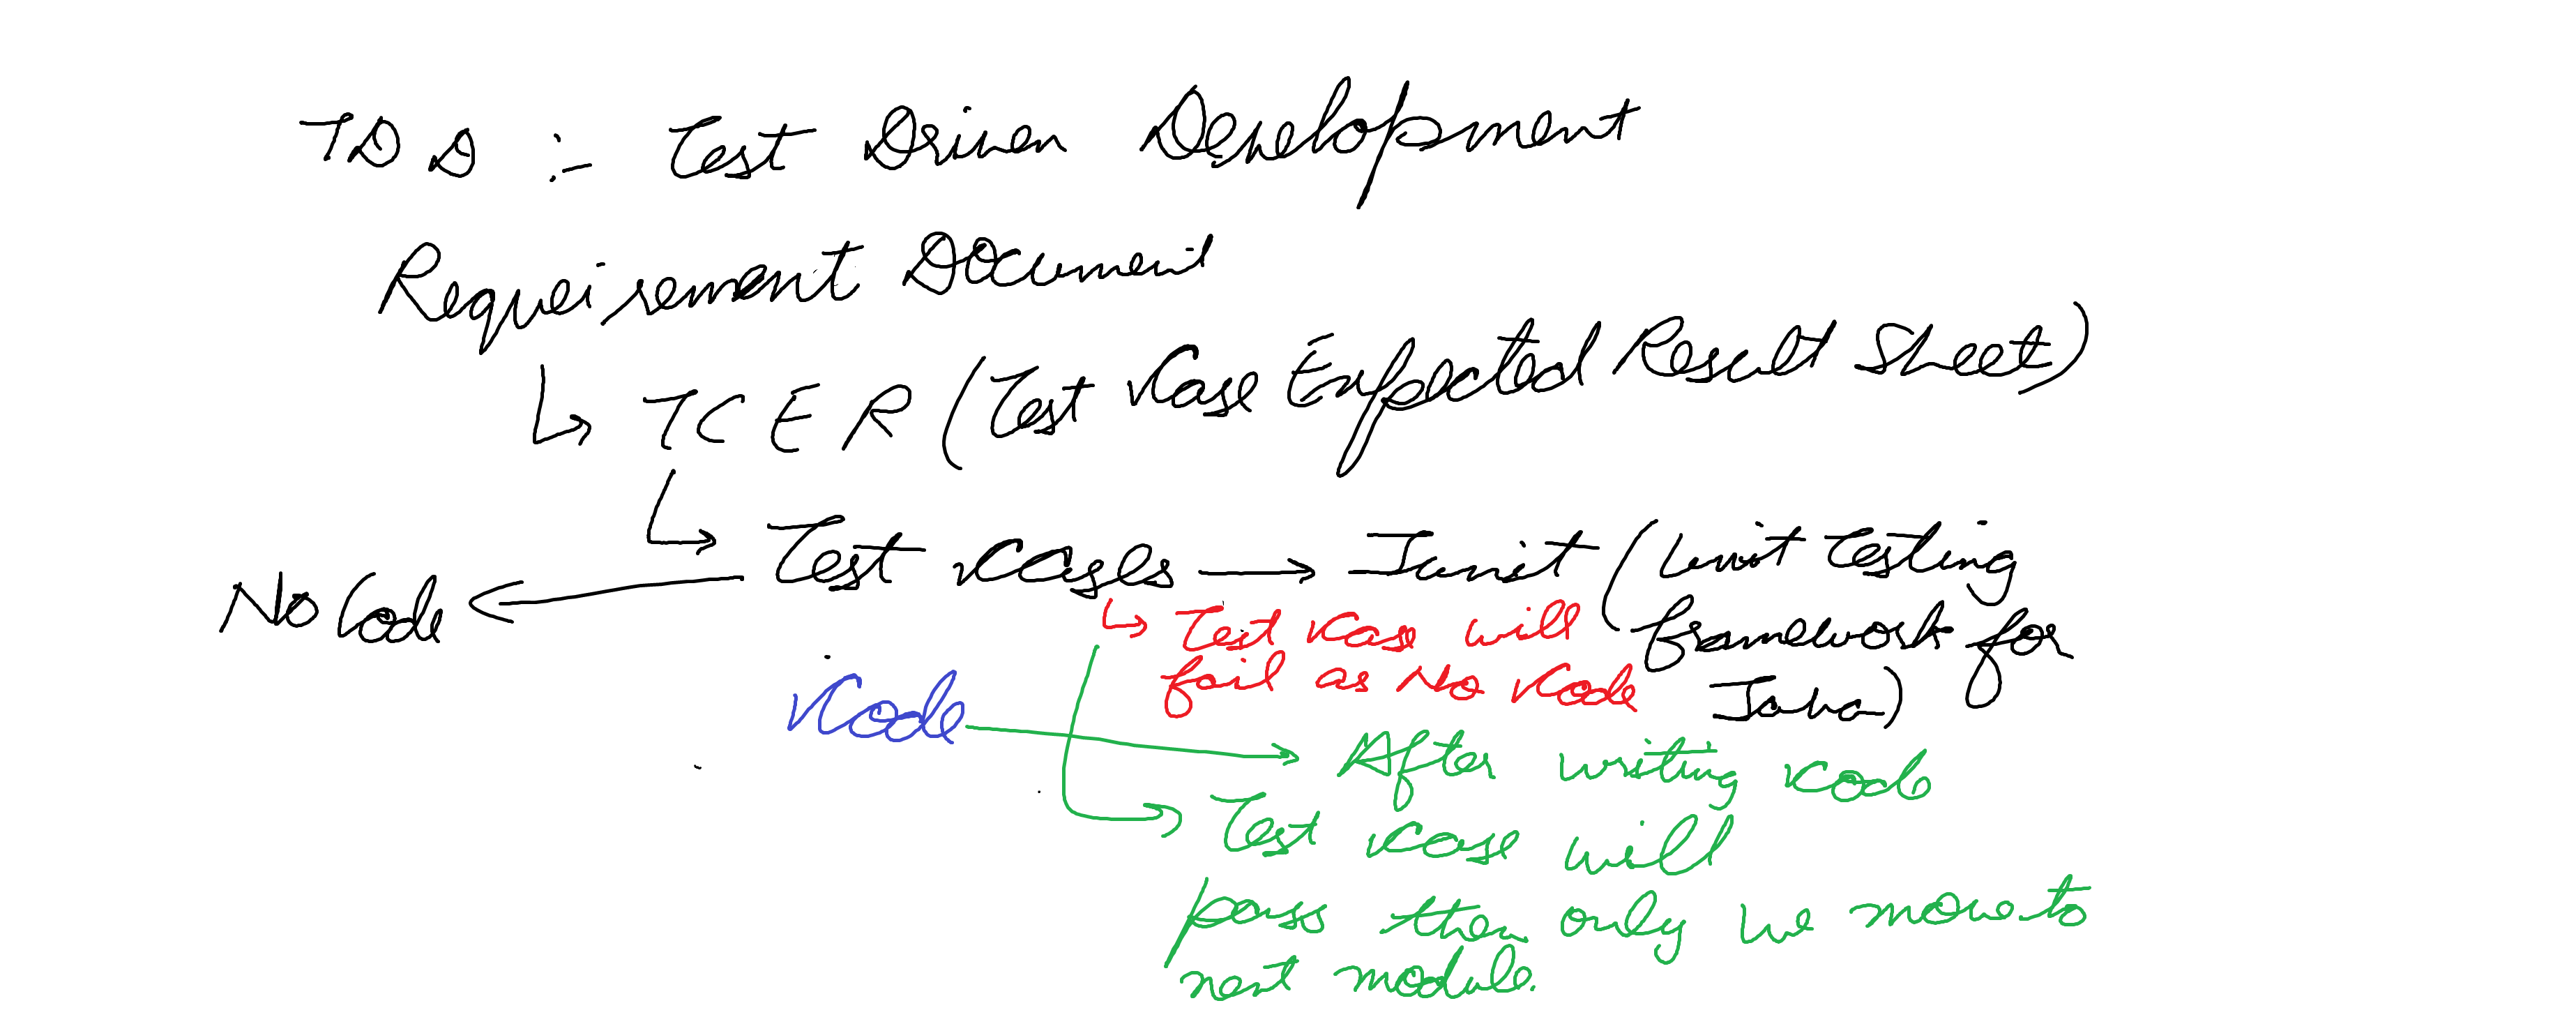 TDD :- Test Driven Development
Requeirement Document
TCER (Test Case Expected Result Sheet)
Test Cases → Junit (Unit Testing
No Code
framework for
Java)
Test Case will
fail as No Code
Code
After writing Code
Test Case will
pass then only we move to
next module.